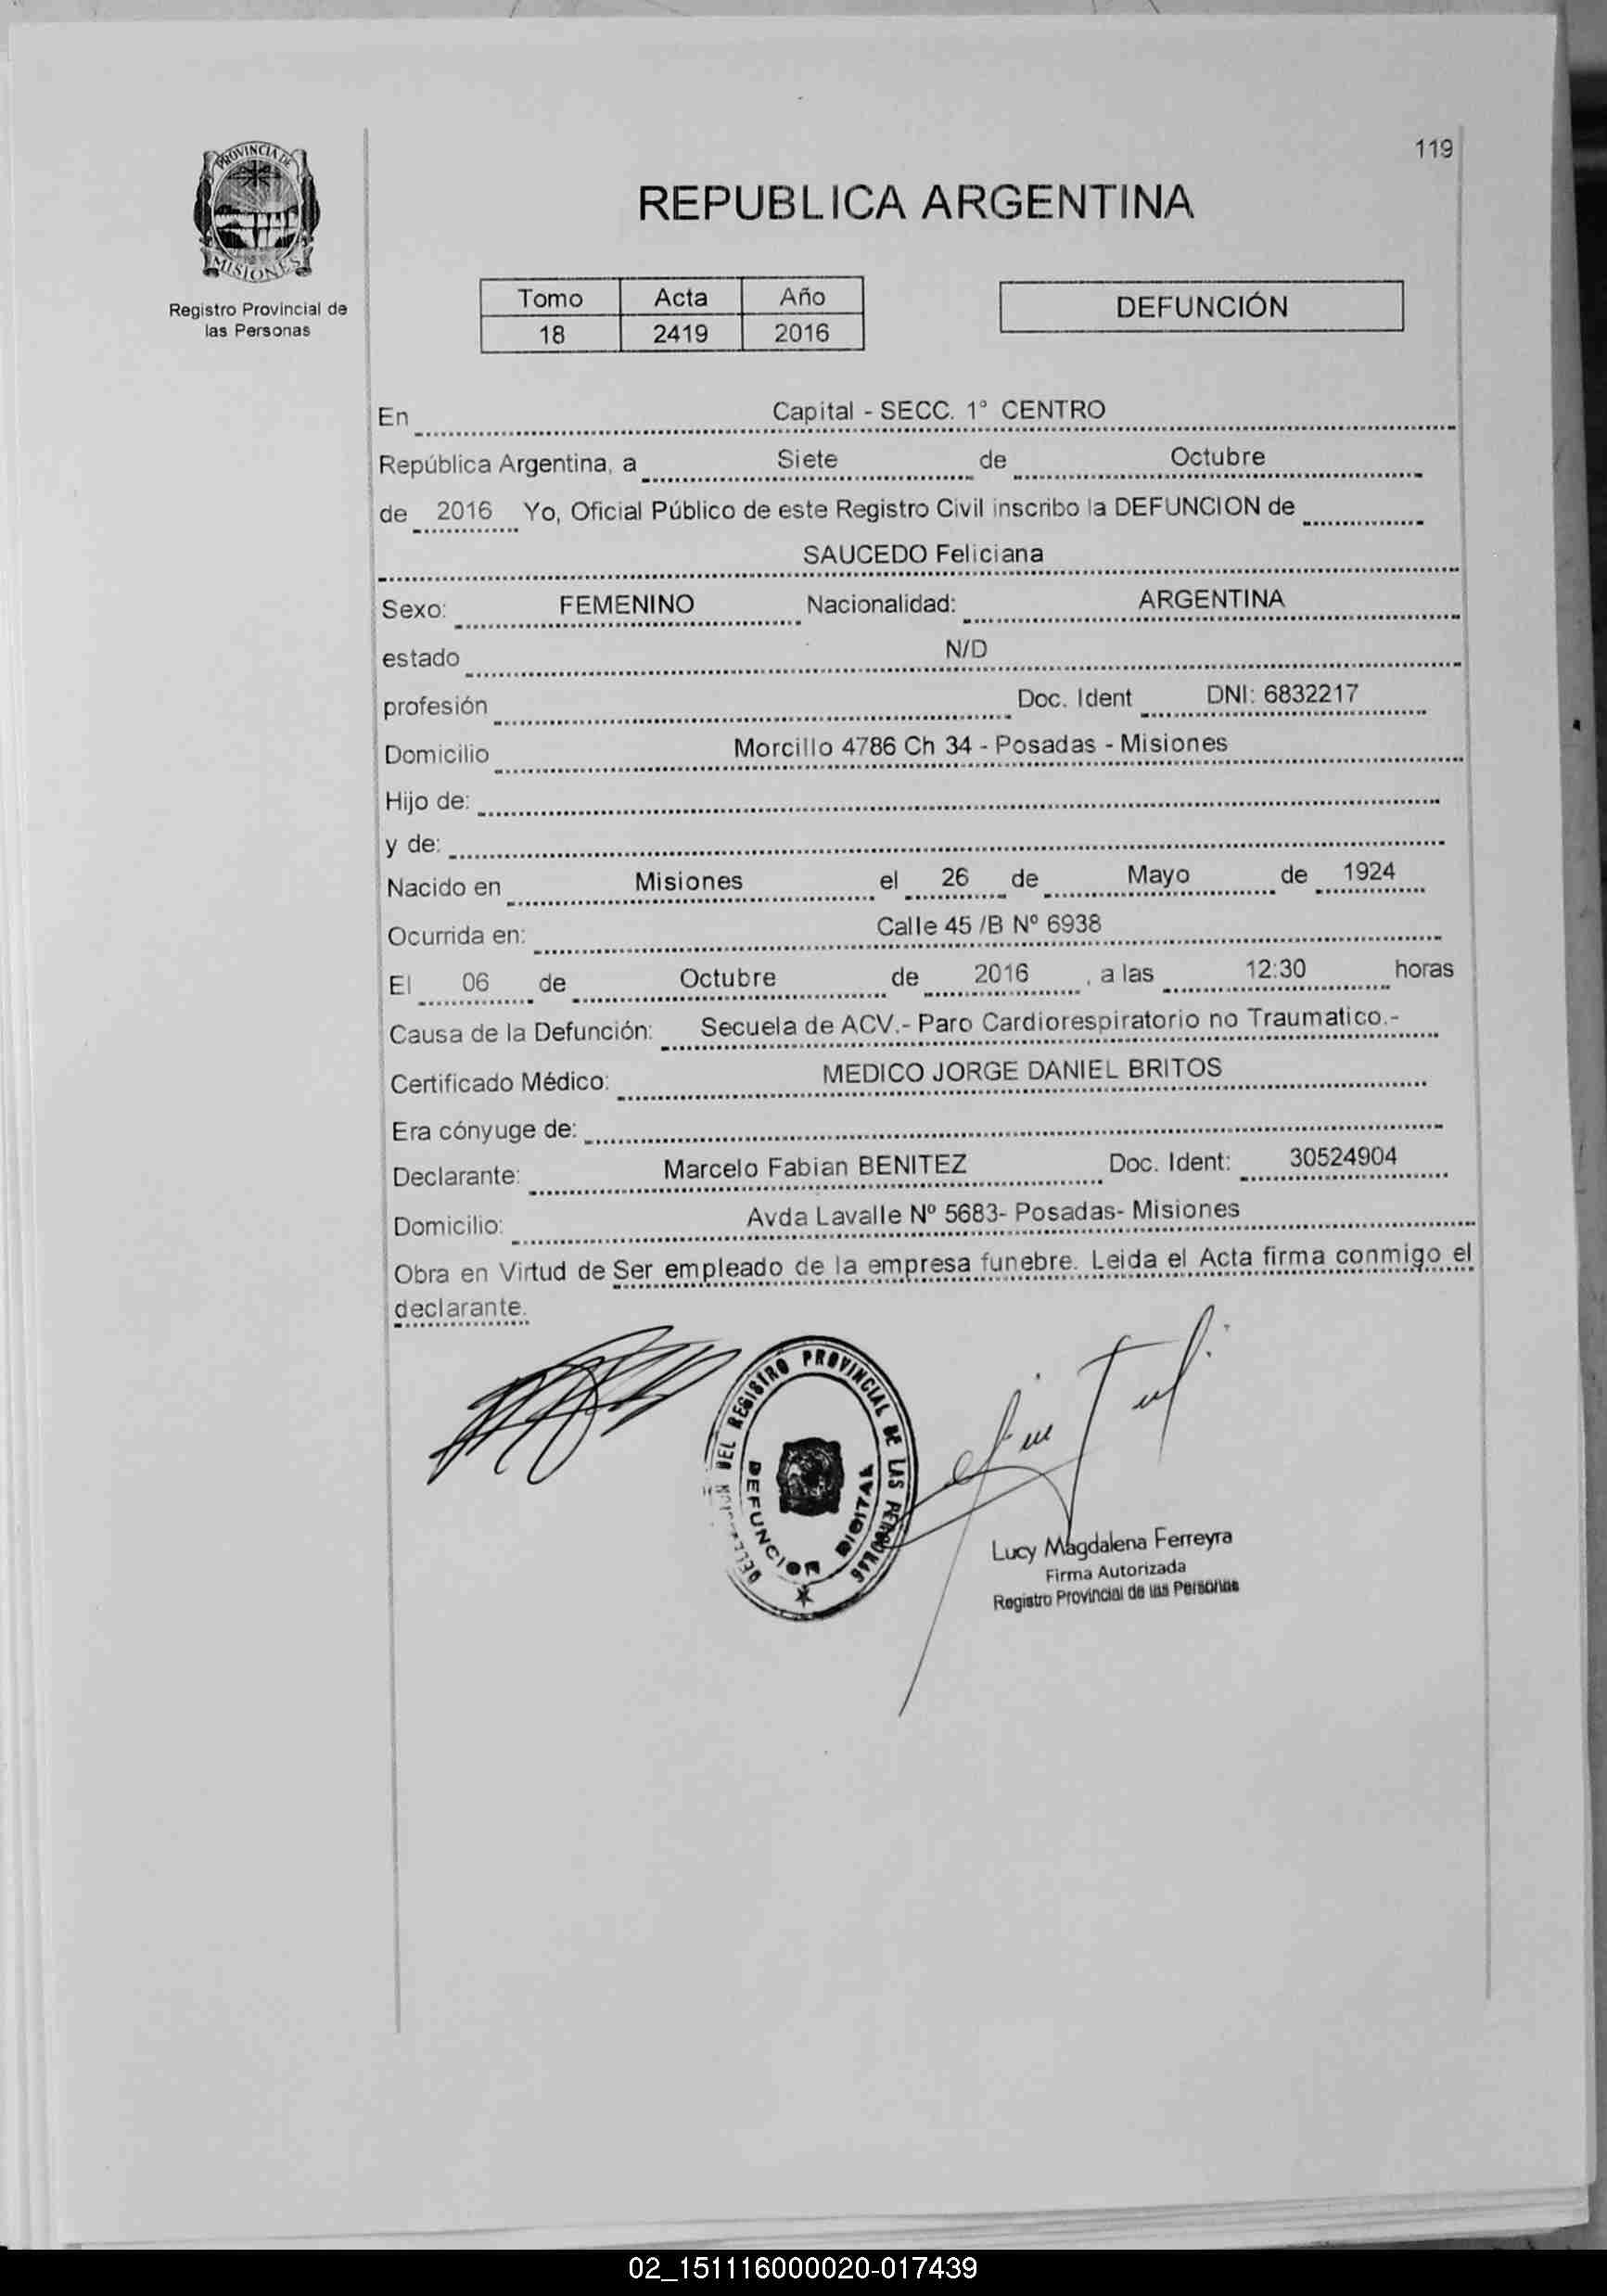 119
PROVINCIA DE
MISIONES
Registro Provincial de
las Personas
REPUBLICA ARGENTINA
Tomo Acta Año
18 2419 2016
DEFUNCIÓN
En Capital - SECC. 1° CENTRO
República Argentina, a Siete de Octubre
de 2016 Yo, Oficial Público de este Registro Civil inscribo la DEFUNCION de
SAUCEDO Feliciana
Sexo: FEMENINO Nacionalidad: ARGENTINA
estado N/D
profesión Doc. Ident DNI: 6832217
Domicilio Morcillo 4786 Ch 34 - Posadas - Misiones
Hijo de:
y de:
Nacido en Misiones el 26 de Mayo de 1924
Ocurrida en: Calle 45 /B Nº 6938
El 06 de Octubre de 2016 , a las 12:30 horas
Causa de la Defunción: Secuela de ACV.- Paro Cardiorespiratorio no Traumatico.-
Certificado Médico: MEDICO JORGE DANIEL BRITOS
Era cónyuge de:
Declarante: Marcelo Fabian BENITEZ Doc. Ident: 30524904
Domicilio: Avda Lavalle Nº 5683- Posadas- Misiones
Obra en Virtud de Ser empleado de la empresa funebre. Leida el Acta firma conmigo el
declarante.
DEL REGISTRO PROVINCIAL DE LAS PERSONAS
DEFUNCION DIGITAL
Lucy Magdalena Ferreyra
Firma Autorizada
Registro Provincial de las Personas
02_151116000020-017439